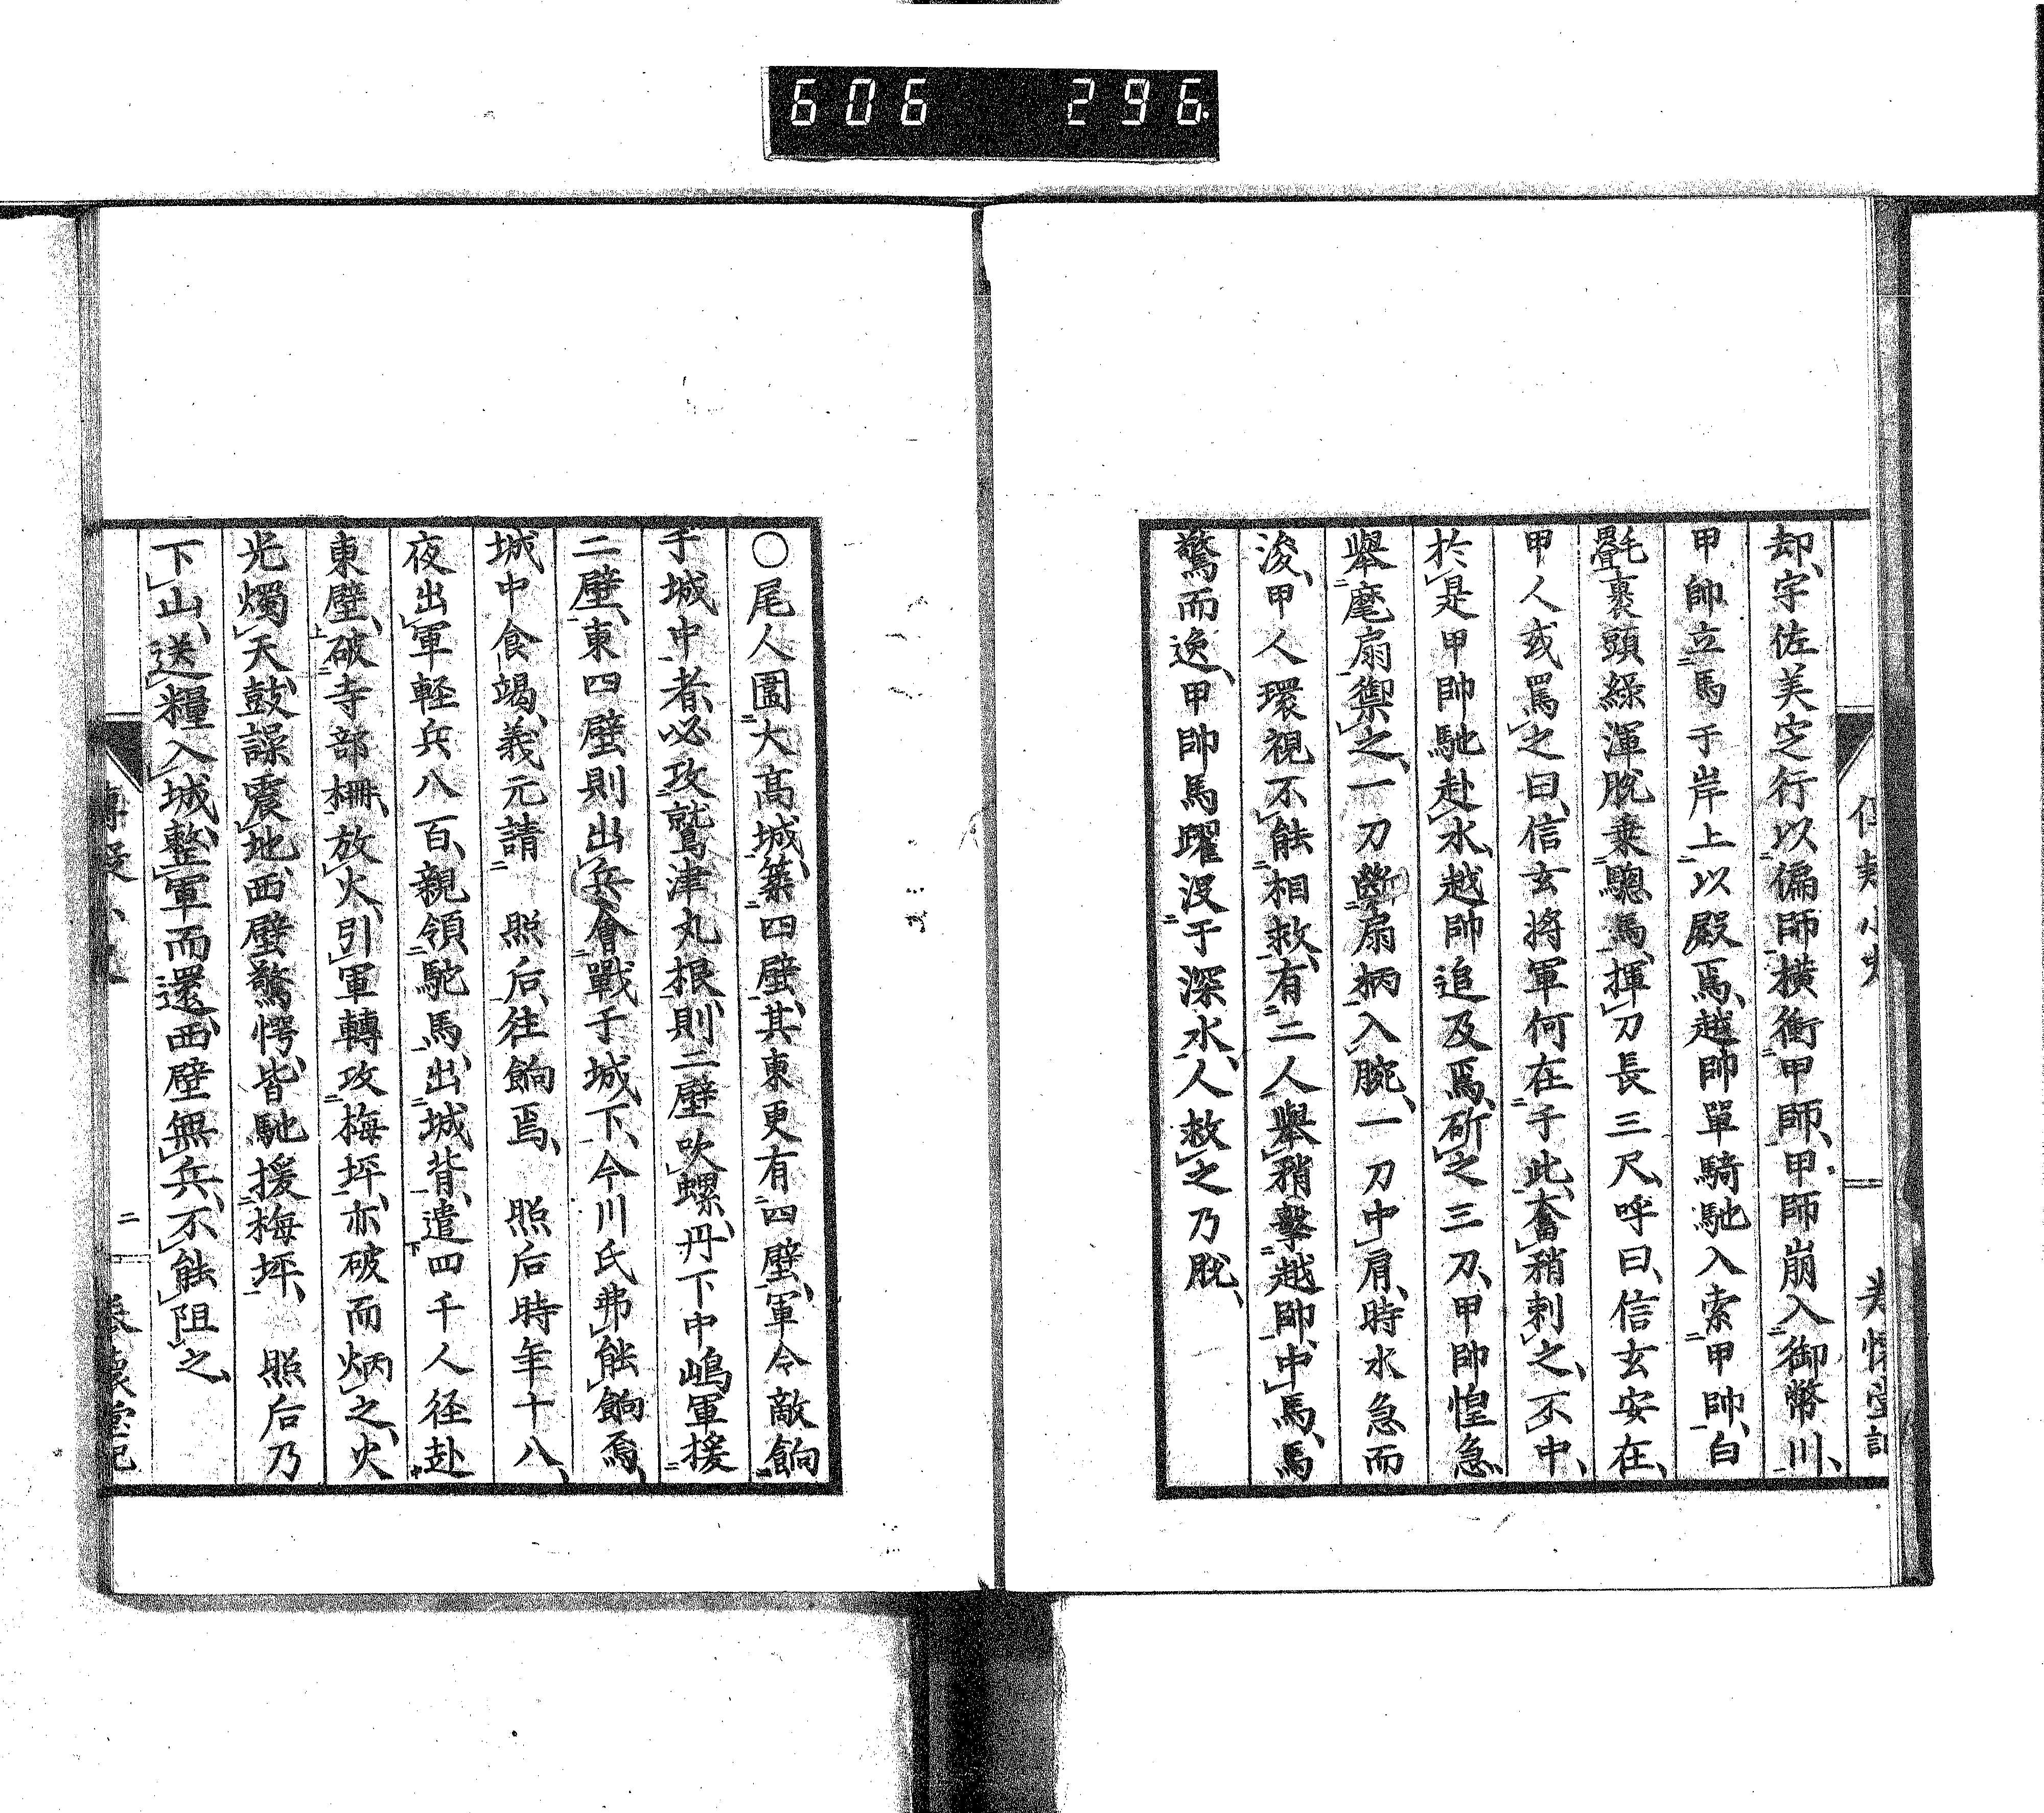 606 296
却、宇佐美定行以偏師横衝甲師、甲師崩入御幣川、
甲帥立馬于岸上以殿焉、越帥單騎馳入索甲帥、白
氎裹頭綠渾脱乗驄馬、揮刀長三尺、呼曰、信玄安在、
甲人或罵之曰、信玄将軍何在于此、奮矟刺之、不中、
於是甲帥馳赴水、越帥追及焉、斫之三刀、甲帥惶急
舉麾扇禦之、一刀斷扇柄入腕、一刀中肩、時水急而
浚、甲人環視不能相救、有二人舉矟擊越帥、中馬、馬
驚而逸、甲帥馬躍没于深水、人救之乃脱、
〇尾人圍大高城、築四壁、其東更有四壁、軍令敵餉
于城中者、必攻鷲津丸根、則二壁吹螺、丹下中嶋軍援
二壁、東四壁則出兵會戰于城下、今川氏弗能餉焉、
城中食竭、義元請 照后、往餉焉、 照后時年十八、
夜出軍軽兵八百、親領馳馬、出城背、遣四千人径赴
東壁、破寺部柵、放火、引軍轉攻梅坪、亦破而炳之、火
光燭天、鼓譟震地、西壁驚愕、皆馳援梅坪、 照后乃
下山、送糧入城、整軍而還、西壁無兵、不能阻之、
二
懷堂記